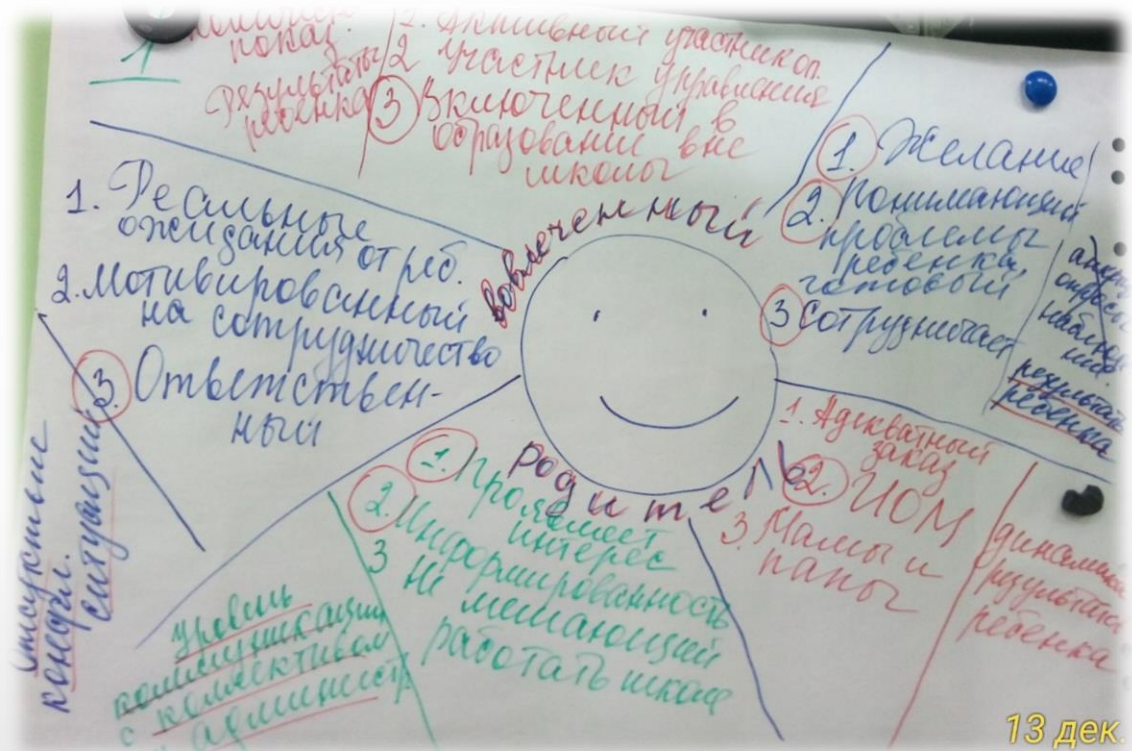 1
показ.
результаты
ребенка
1. Активный участник оп.
2 участник управления
3 Включенный в
образовании вне
школы
1. Реальные
ожидания от реб.
2. Мотивированный
на сотрудничество
3. Ответствен-
ный
Отсутствие
конфл.
ситуаций
Вовлеченный
родитель
1. Желание
2. Понимающий
проблемы
ребенка,
готовый
3 Сотрудничает
опросы
наблюде
ние.
результаты
ребенка
1. Адекватный
заказ
2. ИОМ
3. Мамы и
папы
динамика
результата
ребенка
1. Проявляет
интерес
2. Информированность
3 Не мешающий
работать школе
уровень
коммуникации
с коллективом
и администр.
13 дек.